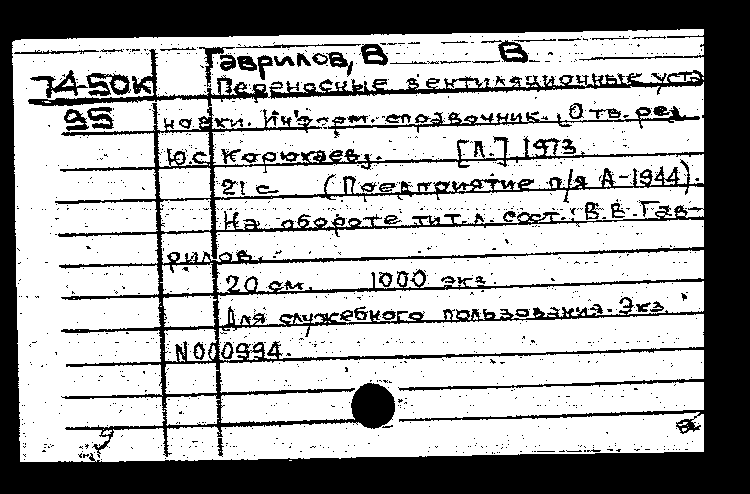 Гаврилов, В В
74-50К
95
Переносные вентиляционные уста
новки. Информ. справочник. [Отв. ред.
Ю.С. Корюкаев]. [Л.], 1973.
21 с (Предприятие п/я А-1944).
На обороте тит. л. сост.: В.В. Гав-
рилов.
20 см. 1000 экз.
Для служебного пользования. Экз.
N000994.
9